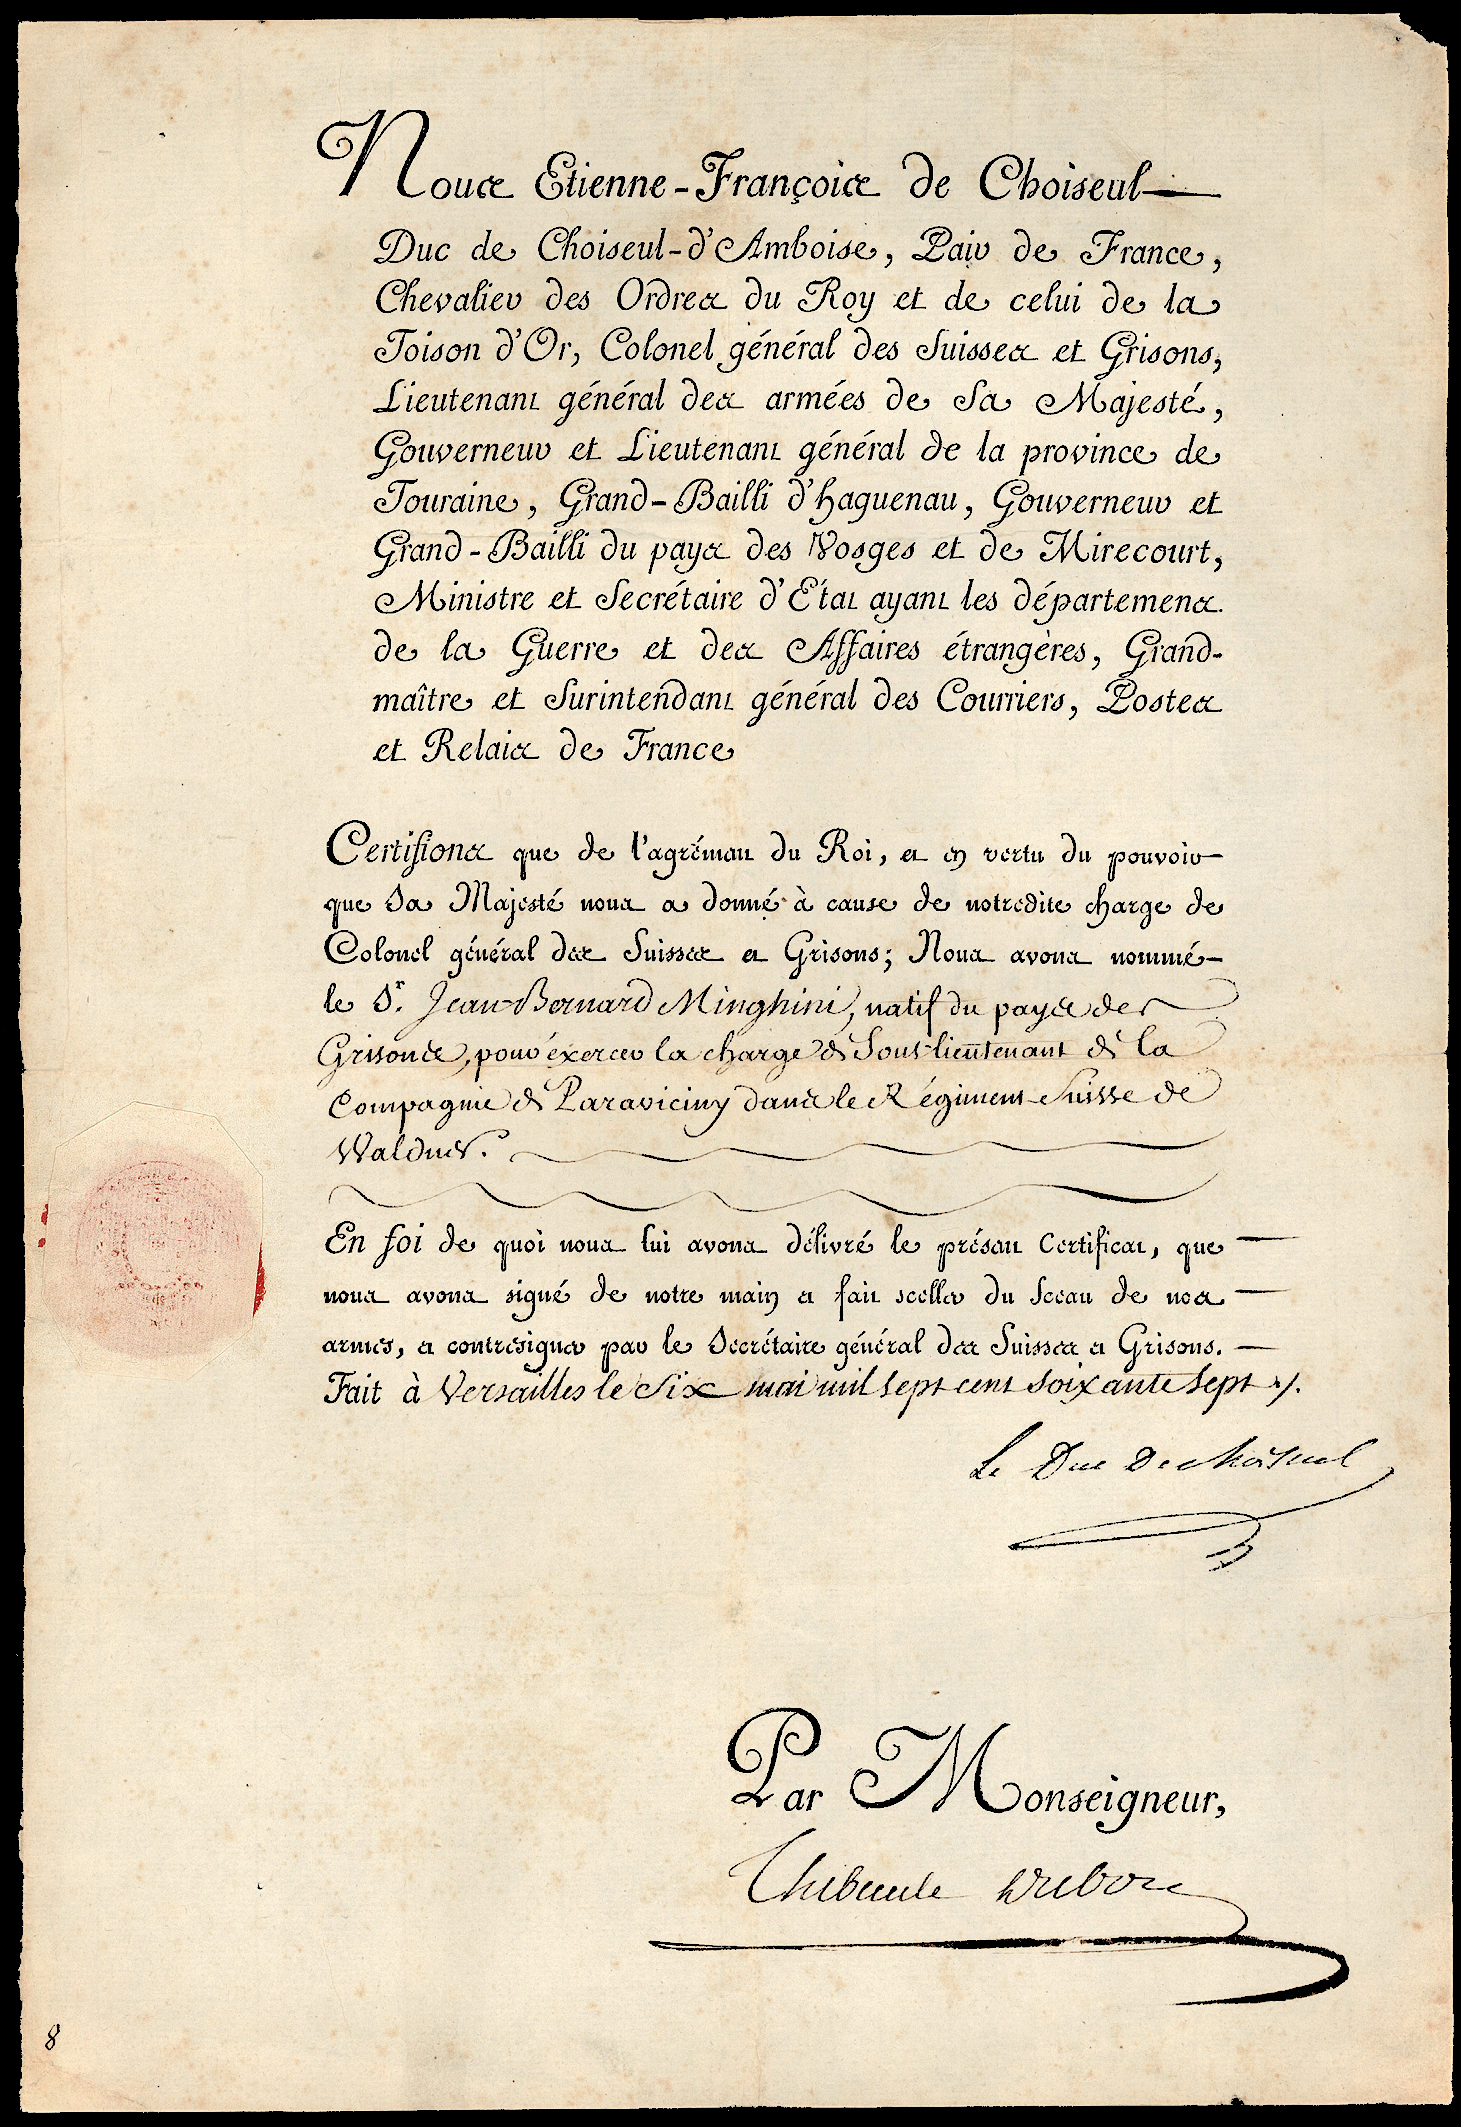 Nous Etienne-François de Choiseul
Duc de Choiseul-d'Amboise, Pair de France,
Chevalier des Ordres du Roy et de celui de la
Toison d'Or, Colonel général des Suisses et Grisons,
Lieutenant général des armées de Sa Majesté,
Gouverneur et Lieutenant général de la province de
Touraine, Grand-Bailli d'haguenau, Gouverneur et
Grand-Bailli du pays des Vosges et de Mirecourt,
Ministre et Secrétaire d'Etat ayant les départemens
de la Guerre et des Affaires étrangères, Grand-
maître et Surintendant général des Courriers, Postes
et Relais de France
Certifions que de l'agrément du Roi, et en vertu du pouvoir
que Sa Majesté nous a donné à cause de notredite charge de
Colonel général des Suisses et Grisons; Nous avons nommé
le Sr. Jean Bernard Minghini, natif du pays des
Grisons, pour exercer la charge de Sous-lieutenant de la
Compagnie de Paraviciny dans le Régiment Suisse de
Waldner.
En foi de quoi nous lui avons délivré le présent Certificat, que
nous avons signé de notre main et fait sceller du Sceau de nos
armes, et contresigner par le Secrétaire général des Suisses et Grisons.
Fait à Versailles le Six mai mil sept cent soixante sept ./.
Le Duc De choiseul
Par Monseigneur,
8